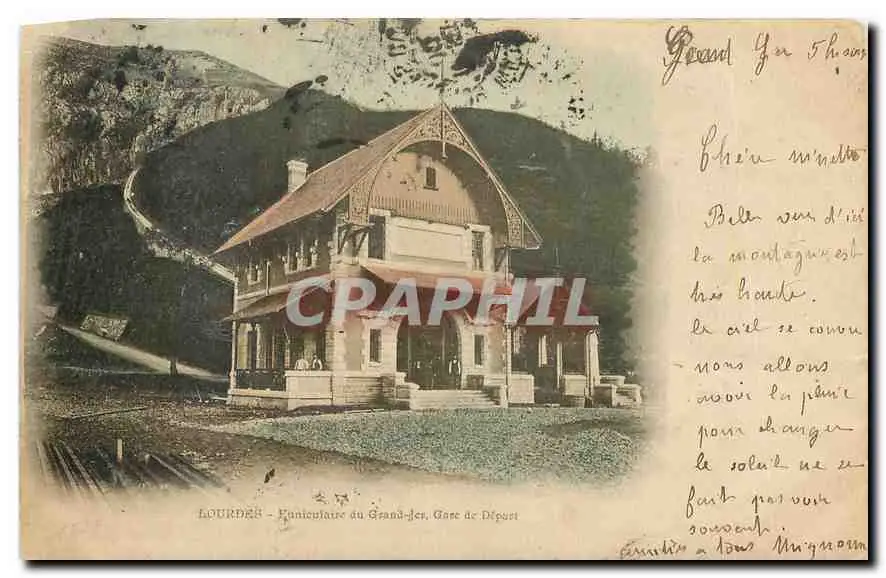 Grand Ger 5h soir
Chère
Belle vue d'ici
la montagne est
très haute.
le ciel se couvre
nous allons
avoir la pluie
pour changer
le soleil ne se
fait pas voir
souvent.
Amitiés à tous Mignonne
CARPHIL
LOURDES - Funiculaire du Grand-Jer, Gare de Départ